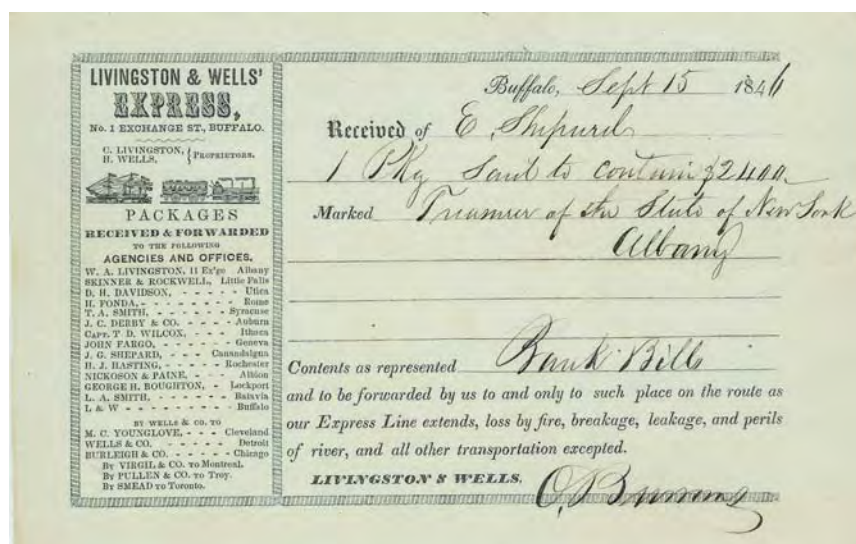 LIVINGSTON & WELLS'
EXPRESS,
No. 1 EXCHANGE ST., BUFFALO.
C. LIVINGSTON,
H. WELLS, { PROPRIETORS.
PACKAGES
RECEIVED & FORWARDED
TO THE FOLLOWING
AGENCIES AND OFFICES.
W. A. LIVINGSTON, 11 Ex'ge Albany
SKINNER & ROCKWELL, Little Falls
D. H. DAVIDSON, - - - - - Utica
H. FONDA, - - - - - - - - Rome
T. A. SMITH, - - - - - - Syracuse
J. C. DERBY & CO. - - - - - Auburn
CAPT. T. D. WILCOX, - - - Ithaca
JOHN FARGO, - - - - - - Geneva
J. G. SHEPARD, - - - - Canandaigua
H. J. HASTING, - - - - - Rochester
NICKOSON & PAINE, - - - Albion
GEORGE H. BOUGHTON, - Lockport
L. A. SMITH, - - - - - - Batavia
L & W - - - - - - - - Buffalo
BY WELLS & CO. TO
M. C. YOUNGLOVE, - - - - Cleveland
WELLS & CO. - - - - - - Detroit
BURLEIGH & CO. - - - - - Chicago
By VIRGIL & CO. to Montreal.
By PULLEN & CO. to Troy.
By SMEAD to Toronto.
Buffalo, Sept 15 1846
Received of E. Shepard
1 Pkg Said to contain $2400
Marked Treasurer of the State of New York
Albany
Contents as represented Bank Bills
and to be forwarded by us to and only to such place on the route as
our Express Line extends, loss by fire, breakage, leakage, and perils
of river, and all other transportation excepted.
LIVINGSTON & WELLS,